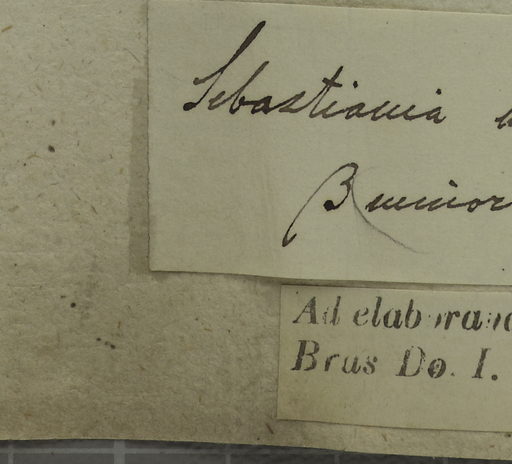 Sebastiania
β minor
Ad elaborand
Bras Do. I.